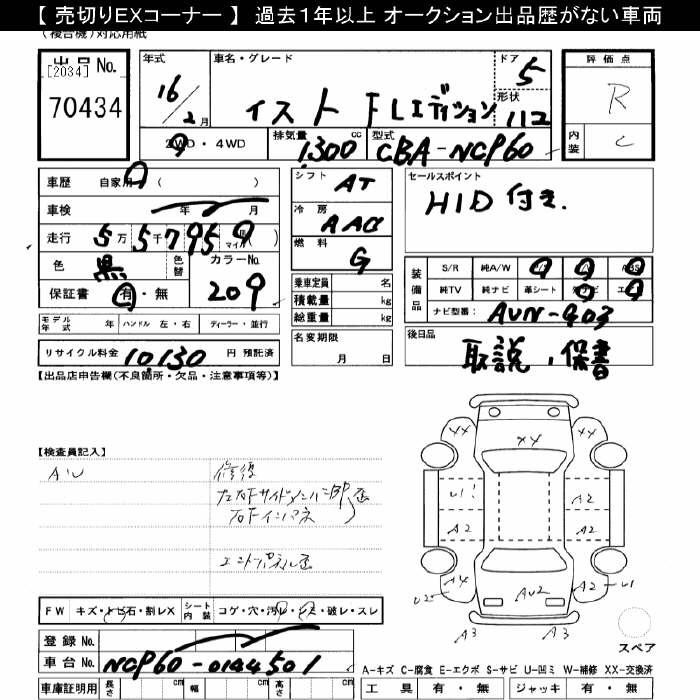 【 売切りEXコーナー 】 過去１年以上 オークション出品歴がない車両
(複合機)対応用紙
出品No.
[2034]
70434
年式
16/2月
車名・グレード
イスト FLエディション
ドア
5
形状
112
評価点
R
内装
C
2WD・4WD
排気量
1,300 cc
型式
CBA-NCP60
車歴 自家用 ( )
車検 年 月
走行 5万5千795 マイル( )
色 黒
色替
カラーNo.
209
保証書 有・無
シフト AT
冷房 AAC
燃料 G
乗車定員 名
積載量 kg
総重量 kg
名変期限
月 日
セールスポイント
HID 付き.
装備品
S/R 純A/W P/S P/W ABS
純TV 純ナビ 革シート
ナビ型番: AVN-903
後日品
取説、保書
モデル年式 年 ハンドル 左・右 ディーラー・並行
リサイクル料金 10,130 円 預託済
【出品店申告欄(不良箇所・欠品・注意事項等)】
【検査員記入】
AU
修復
XX
XX
XX
U1
A2
A2
A2
U2
A4
AU2
A2
U1
A3
A3
スペア
FW キズ・トビ石・割レX
シート内装 コゲ・穴・汚レ・シミ・破レ・スレ
登録 No.
車台 No. NCP60-0144501
車庫証明用 長さ cm 幅 cm 高さ cm
A-キズ C-腐食 E-エクボ S-サビ U-凹ミ W-補修 XX-交換済
工具 有・無 ジャッキ 有・無